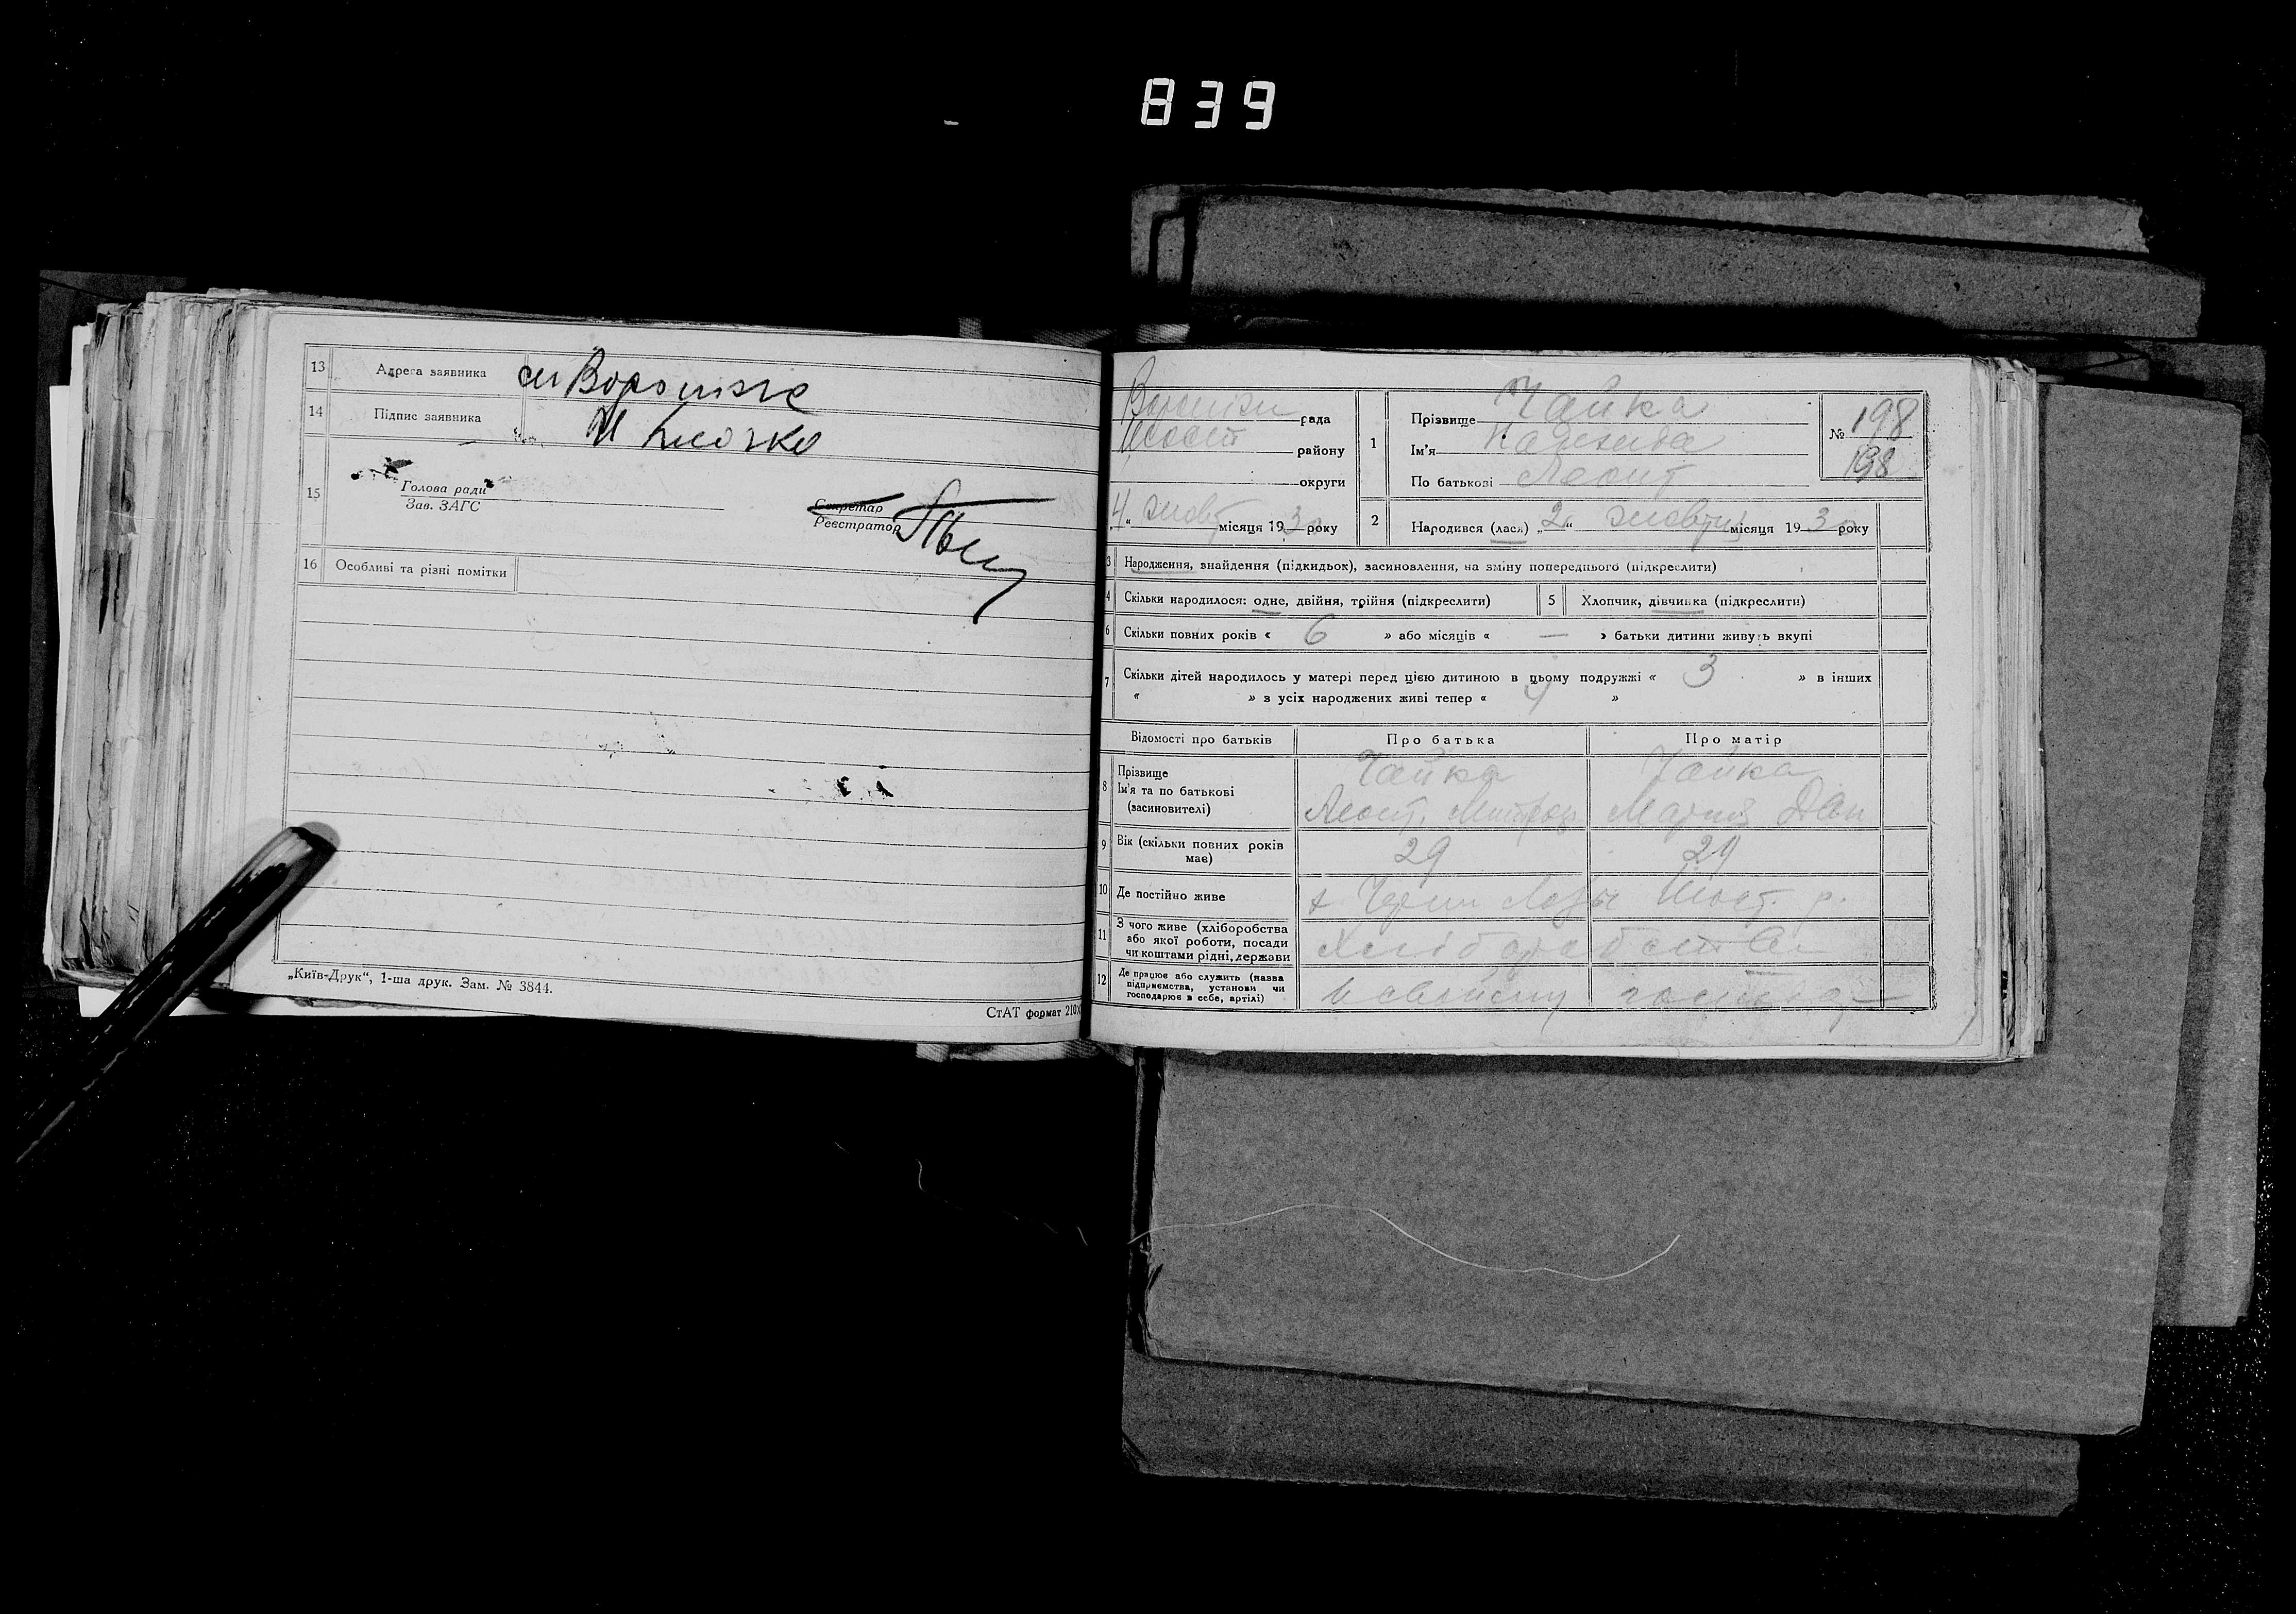 839
13 Адреса заявника см Вороніж
14 Підпис заявника И Клочко
15 Голова ради
Зав. ЗАГС
Секретар
Реєстратор
16 Особливі та різні помітки
„Київ-Друк“, 1-ша друк. Зам. № 3844.
СтАТ формат 210
рада
Шост району
округи
4 “ жовт місяця 1930 року
1 Прізвище Чайка
Ім'я
По батькові
№ 198
198
2 Народився (лася) „2“ жовтня місяця 1930 року
3 Народження, знайдення (підкидьок), засиновлення, на зміну попереднього (підкреслити)
4 Скільки народилося: одне, двійня, трійня (підкреслити)
5 Хлопчик, дівчинка (підкреслити)
6 Скільки повних років « 6 » або місяців « — » батьки дитини живуть вкупі
7 Скільки дітей народилось у матері перед цією дитиною в цьому подружжі « 3 » в інших
« » з усіх народжених живі тепер « 4 »
Відомості про батьків Про батька Про матір
8 Прізвище Чайка Чайка
Ім'я та по батькові
(засновителі) Мария
9 Вік (скільки повних років
має) 29 29
10 Де постійно живе Шост. р.
11 З чого живе (хліборобства
або якої роботи, посади
чи коштами рідні, держави хліборобства
12 Де працює або служить (назва
підприємства, установи чи
господарює в себе, артілі) в своїому госп